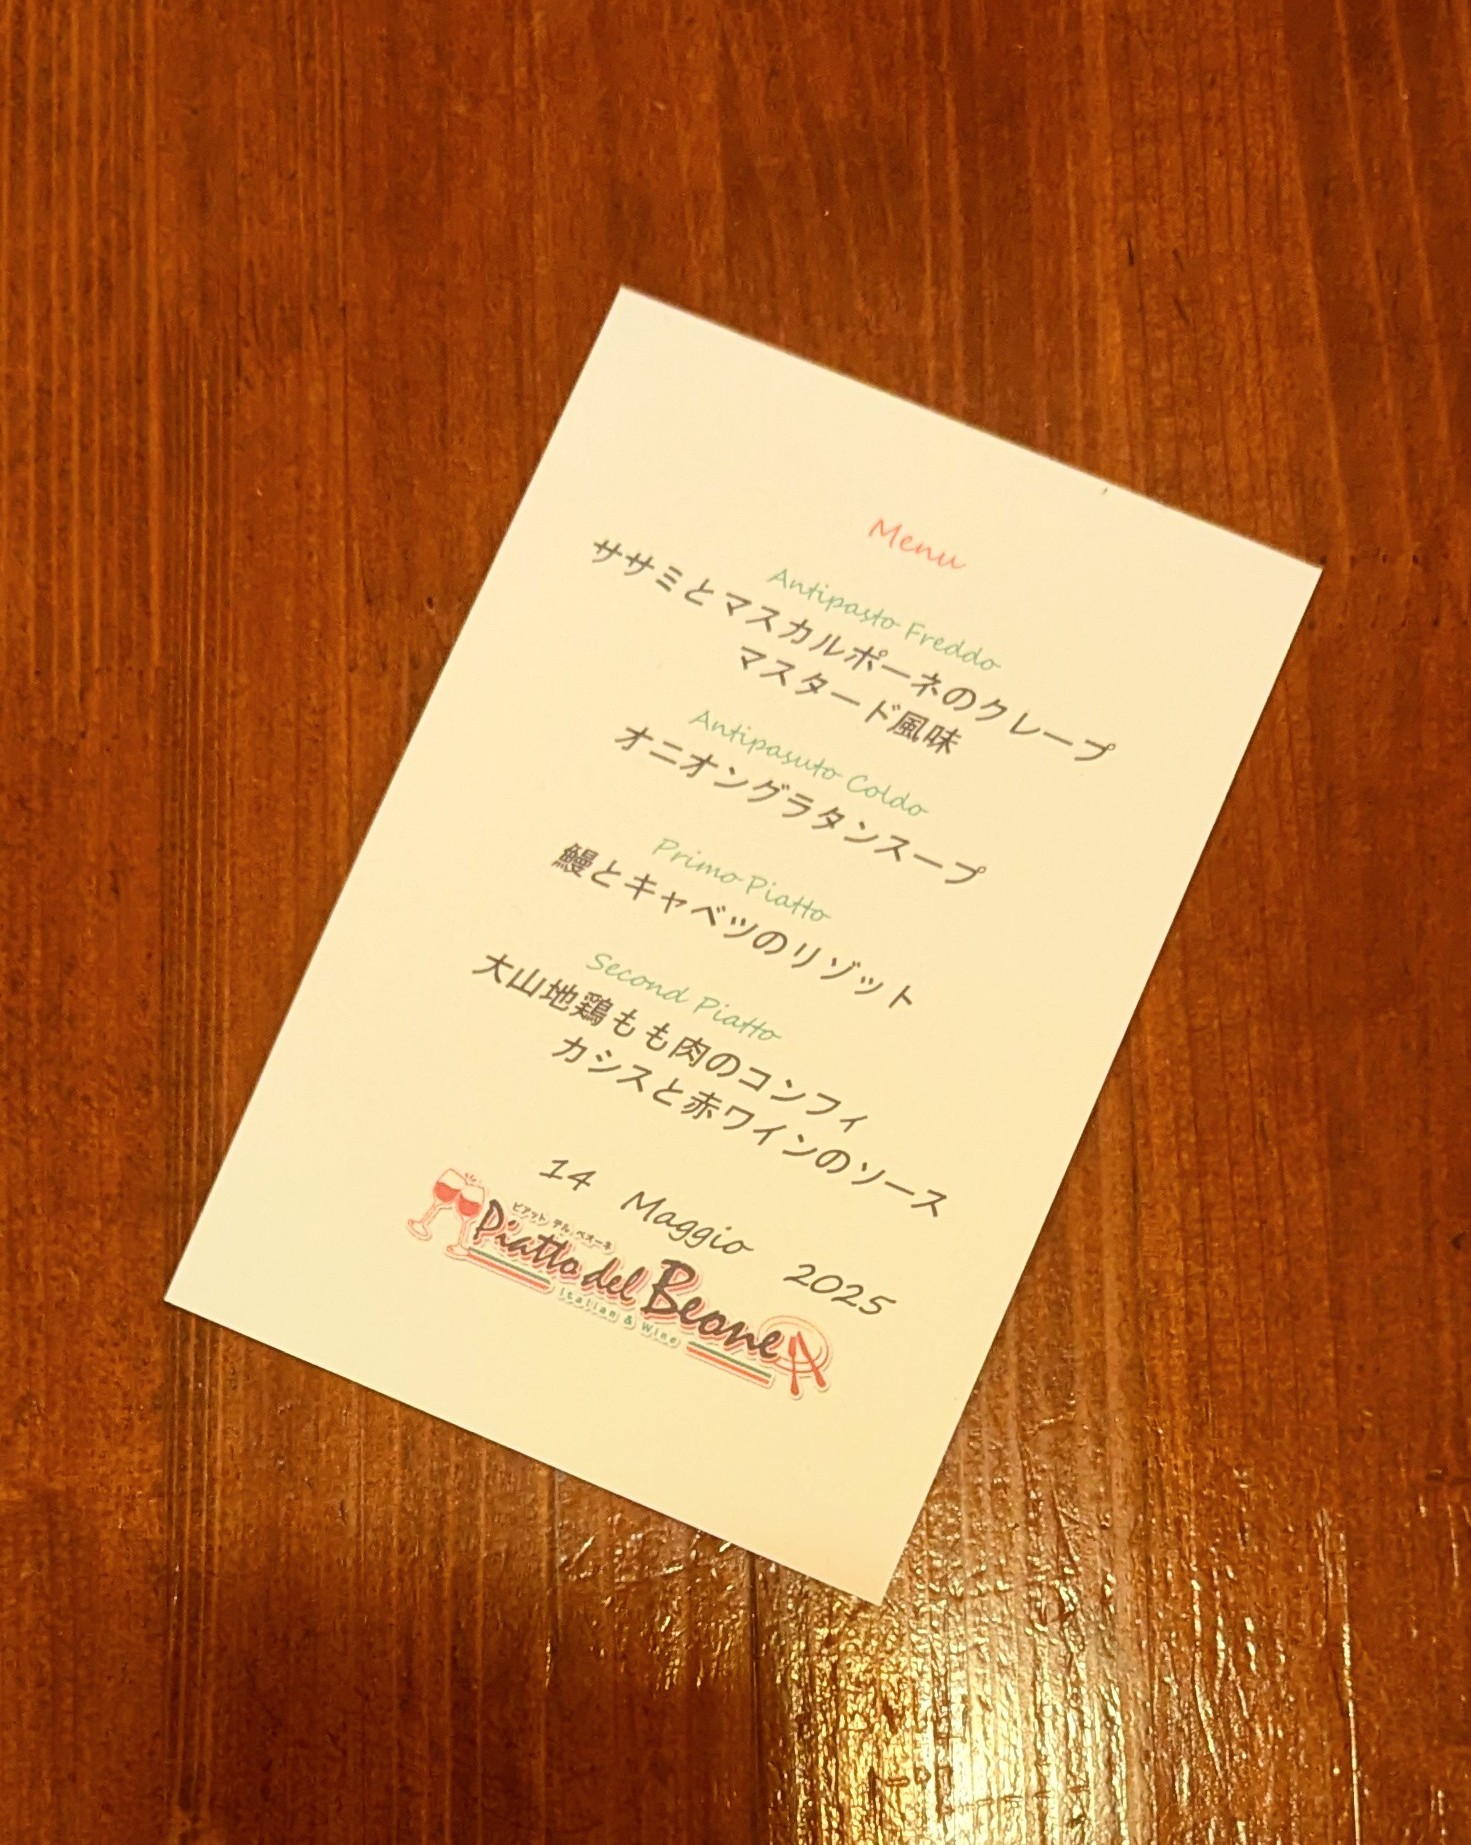 Menu
Antipasto Freddo
ササミとマスカルポーネのクレープ
マスタード風味
Antipasuto Coldo
オニオングラタンスープ
Primo Piatto
鰻とキャベツのリゾット
Second Piatto
大山地鶏もも肉のコンフィ
カシスと赤ワインのソース
14 Maggio 2025
ピアット デル ベオーネ
Piatto del Beone
Italian & Wine